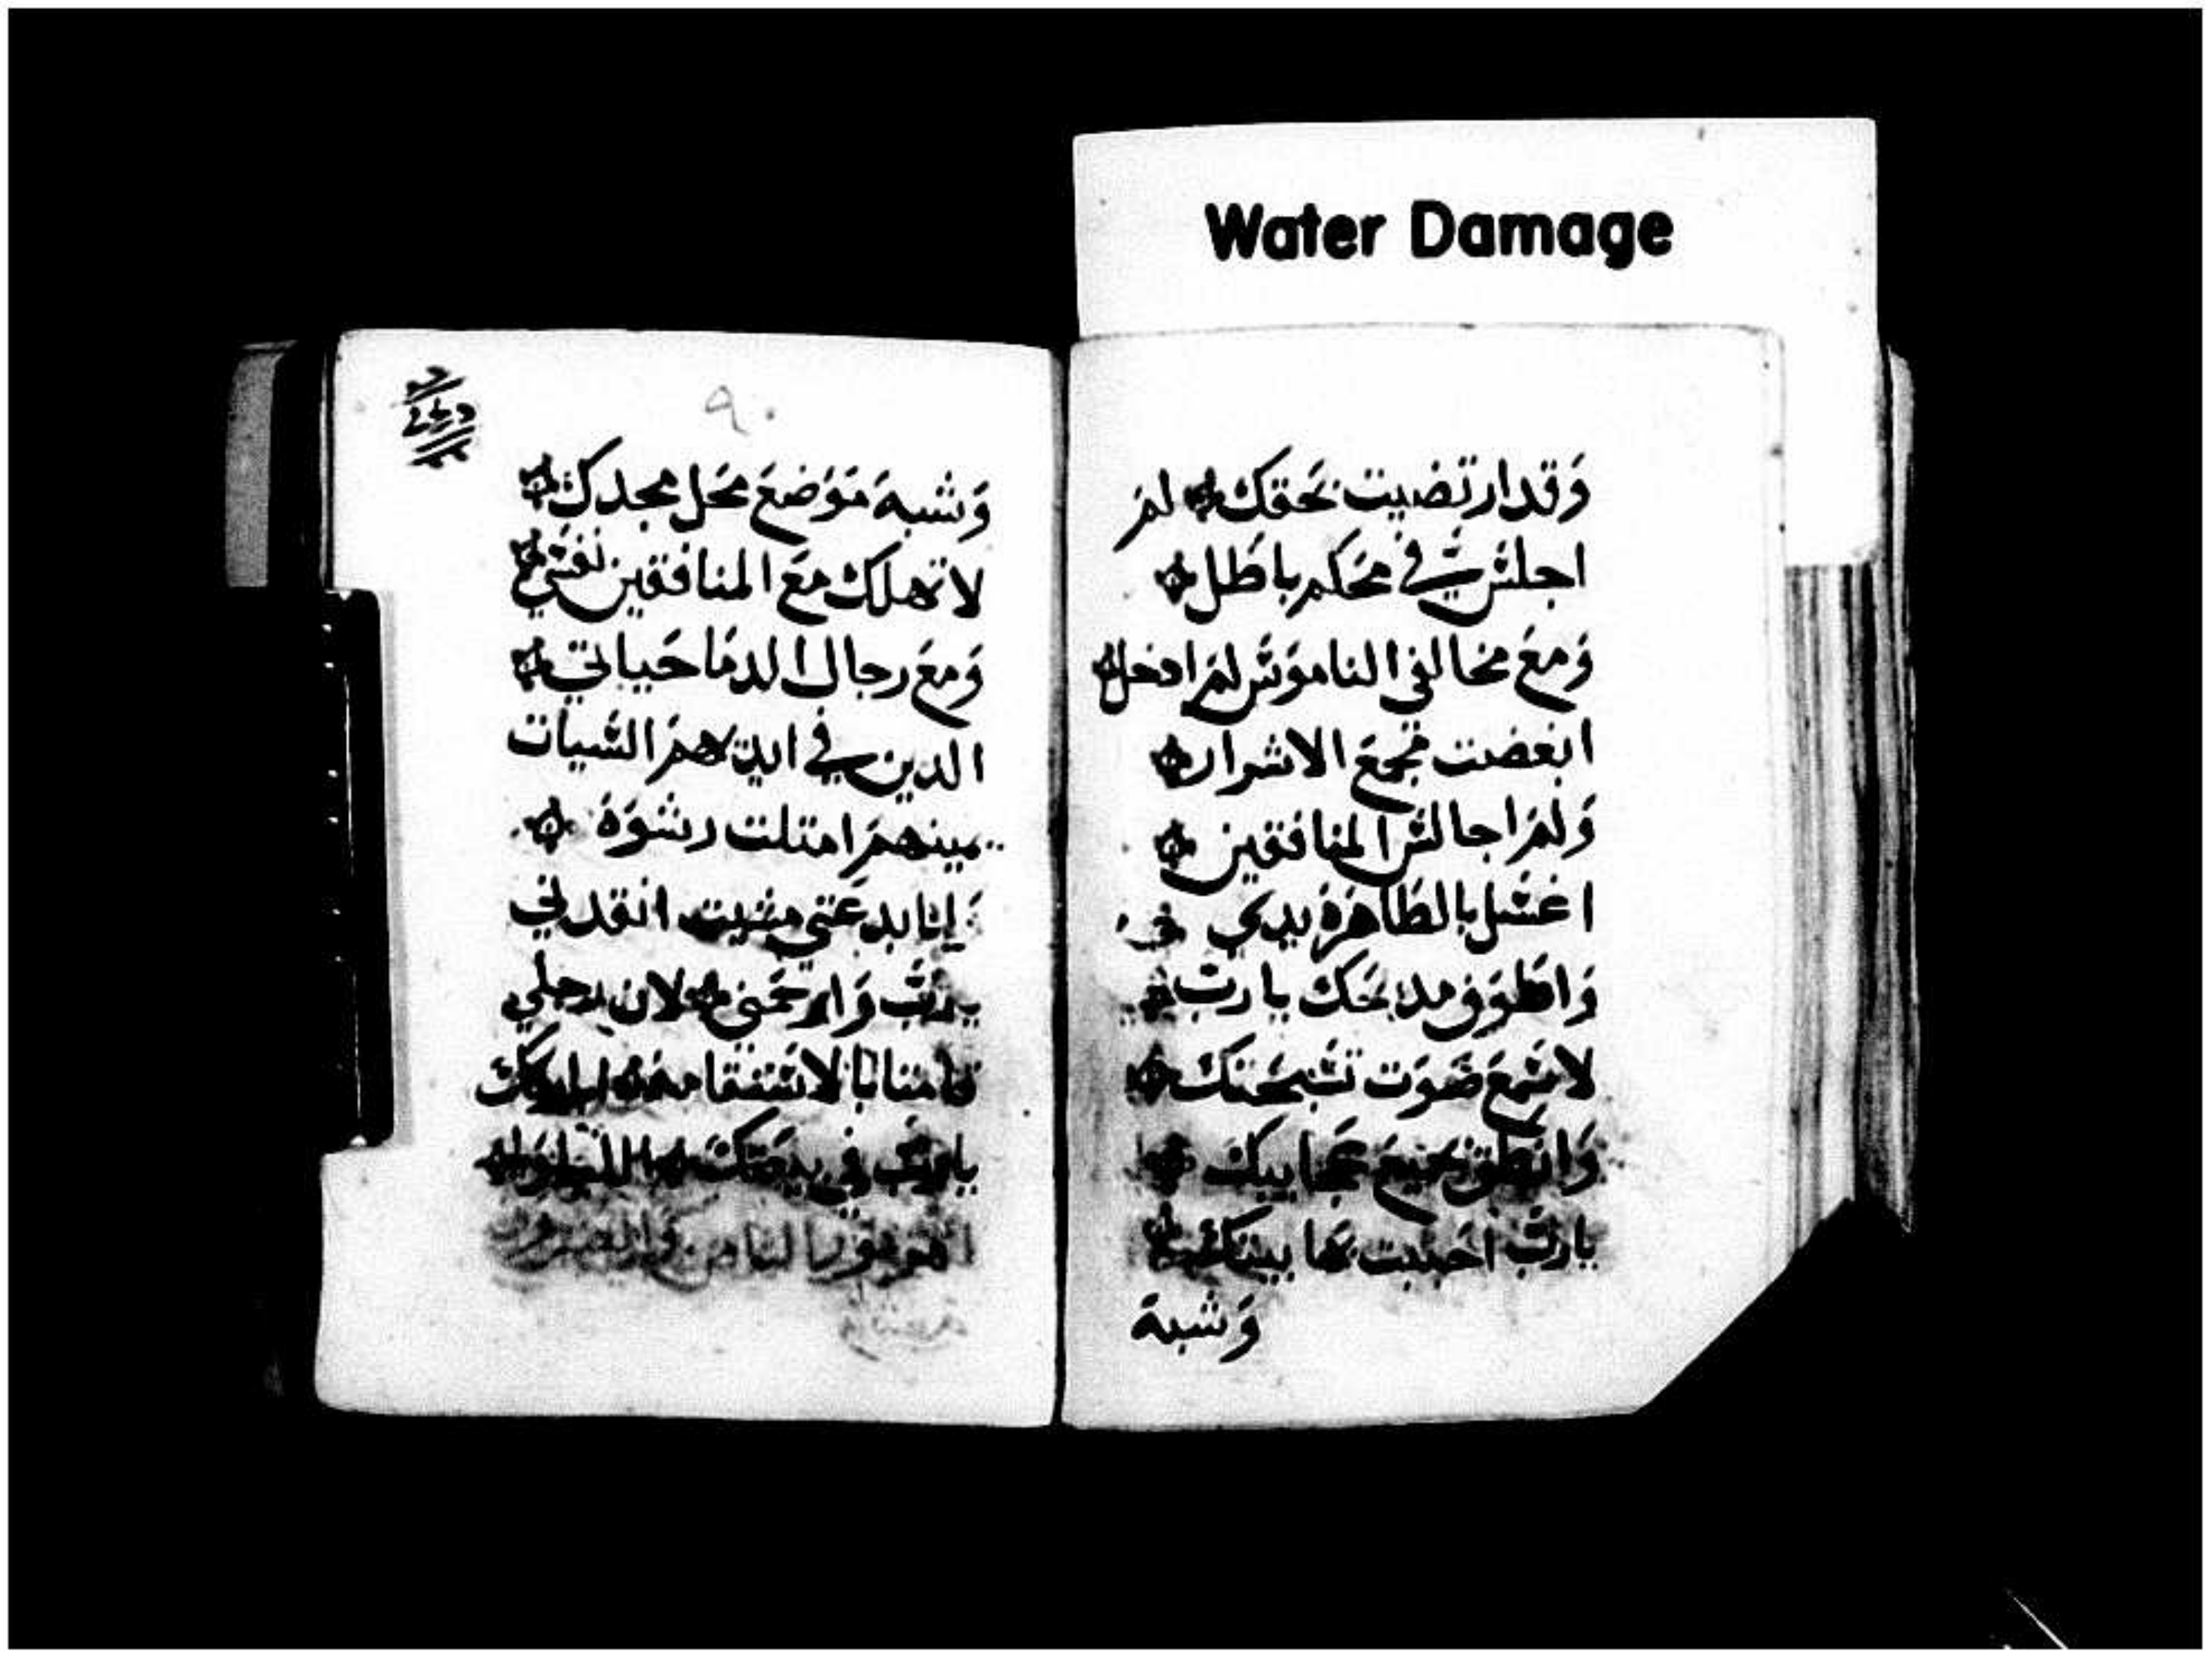 Water Damage
وَقدارتضيت بحقك لمَ
اجلسْ في محكم باطل
وَمعَ مخالفي الناموَسْ لمَ ادخل
ابغضت مجمعَ الاشرار
وَلمَ اجالسْ المنافقين
اغسْل بالطاهرة يدي
وَاطوَف مدبحَك يارب
لاسْمعَ صَوَت تسْبحَتك
وَانطق بجميعَ عجايبك
يارب احَببت بها بيتك
وَشبة
٩٠
وَشبهَ مَوَضعَ محَل مجدك
لا تهلك معَ المنافقين نفسْي
وَمعَ رجال الدمَا حَياتي
الدين في ايديهمَ السْيات
يمينهمَ امتلت رشوَة
وَانا بدعتي مشيت انقدني
يارب وَارحمَني لان رجلي
يارب في بيعَتك